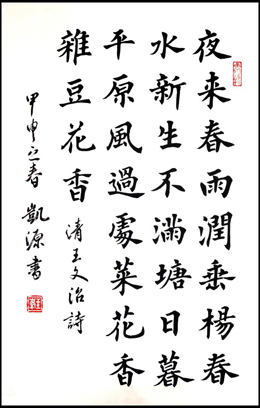 夜来春雨潤垂楊春
水新生不滿塘日暮
平原風過處菜花香
雜豆花香 清王文治詩
甲申之春 凱源書